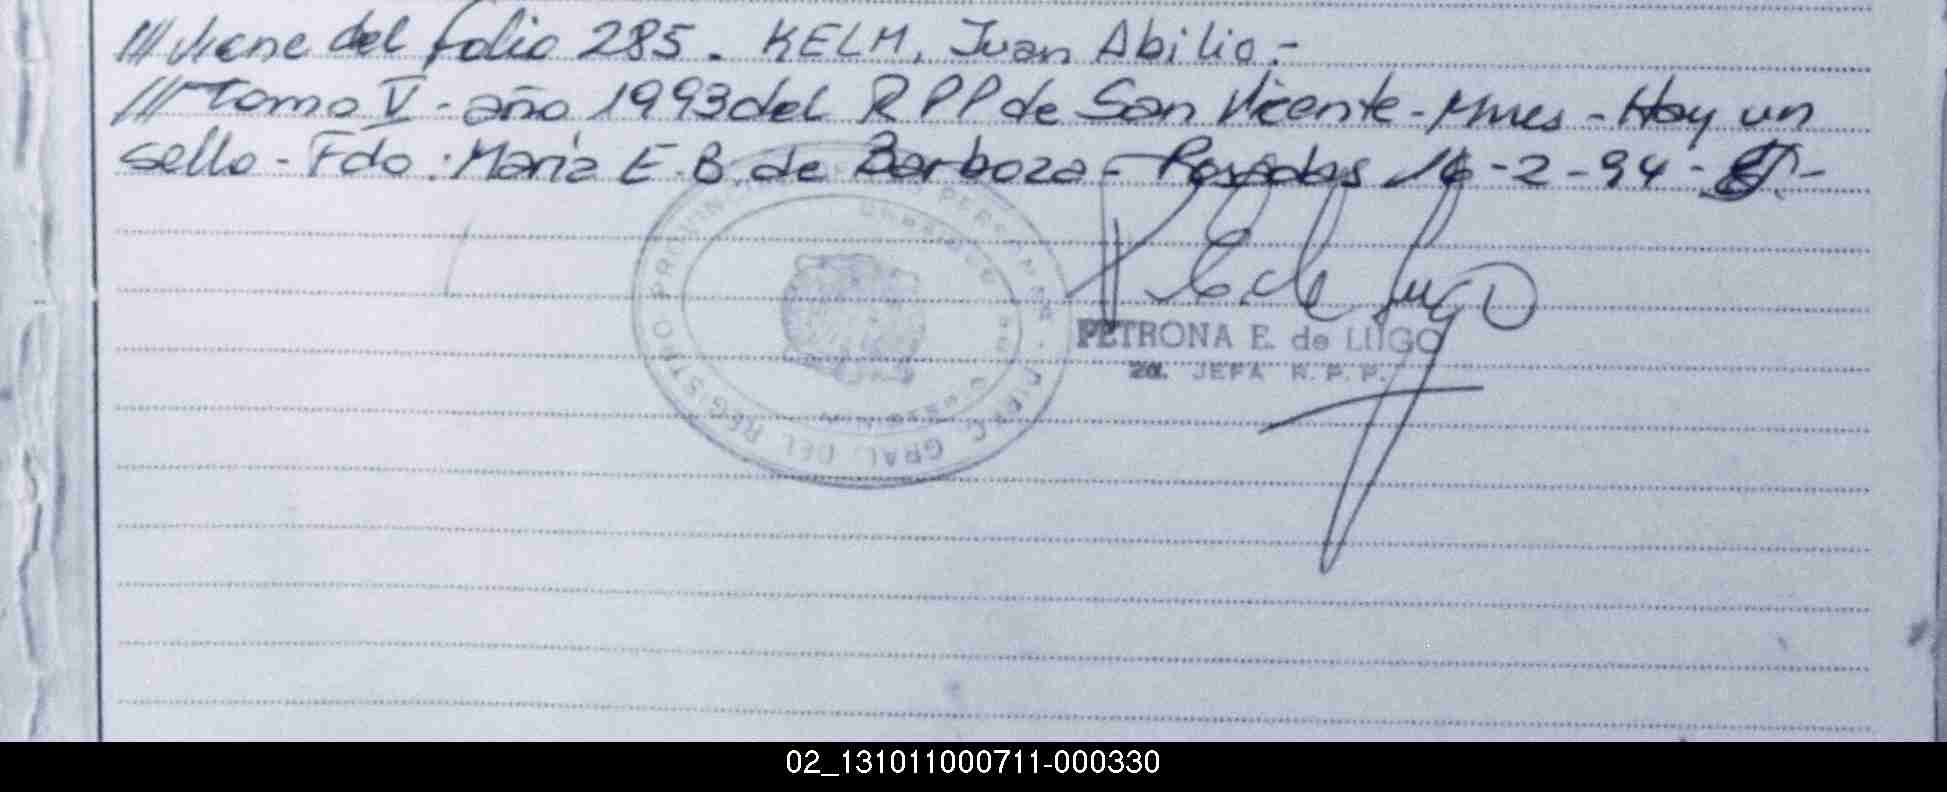 ///Viene del folio 285. KELM, Juan Abilio.-
///Tomo V - año 1993 del RPP de San Vicente - Mnes - Hay un
sello - Fdo: María E. B. de Barboza - Posadas 16-2-94 -
P E de Lugo
PETRONA E. de LUGO
2a. JEFA R. P. P.
DIREC. GRAL. DEL REGISTRO PROVINCIAL
02_131011000711-000330